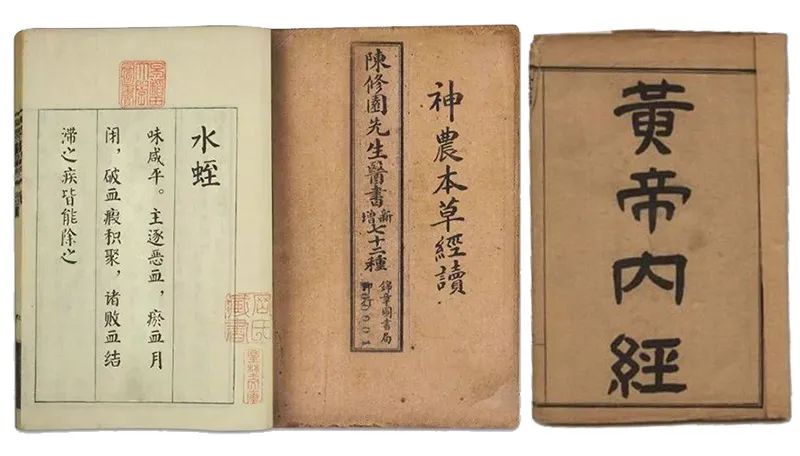 水蛭
味咸平。主逐恶血，瘀血月
闭，破血瘕积聚，诸败血结
滞之疾皆能除之
神農本草經讀
陳修園先生醫書新增七十二種
錦章圖書局
黃帝内經